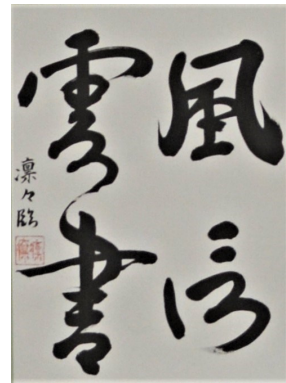 風信
雲書
凛々臨